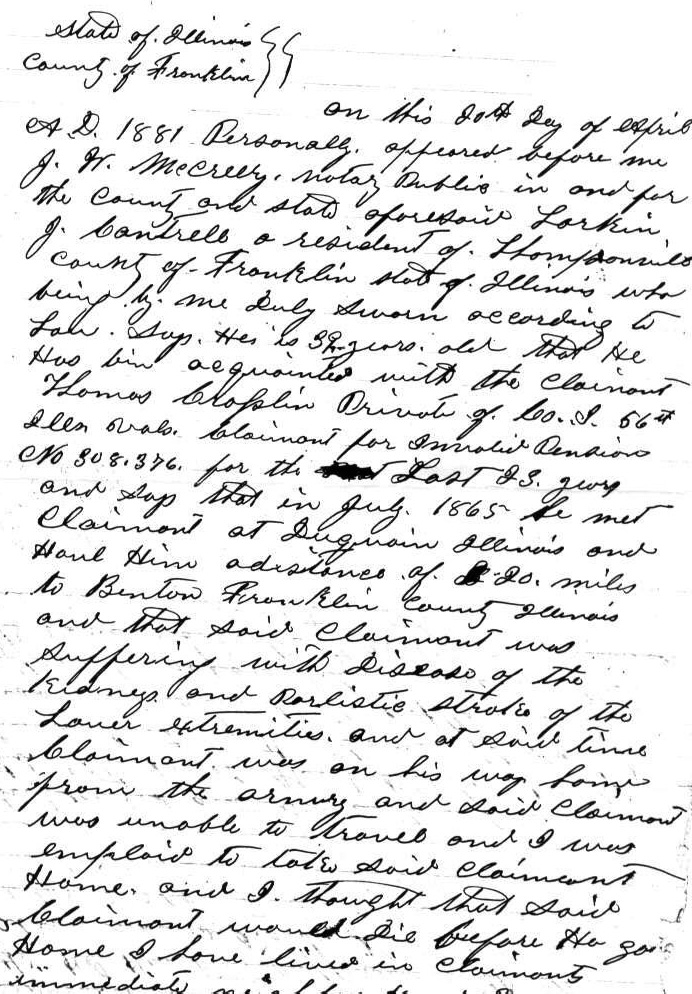 State of Illinois
County of Franklin
on this 20th Day of April
A.D. 1881 Personally appeared before me
J. W. McCreery. notary Public in and for
the County and State aforesaid Larkin
J. Cantrell a resident of Thompsonville
County of Franklin State of Illinois who
being by me Duly Sworn according to
Law. Says. He is 39 years. old that He
Has bin acquainted with the Claimant
Thomas Private of Co. I. 56th
Ills Vols. Claimant for Invalid Pension
No 308.376. for the Last 23. years
and Says that in July. 1865 he met
Claimant at Duquoin Illinois and
Haul Him adistance of 20. miles
to Benton Franklin County Illinois
and that said Claimant was
Suffering with Disease of the
Kidneys and Parlistic stroke of the
Lower extremities. and at said time
Claimant was on his way home
from the army and said Claimant
was unable to travel and I was
emploid to take said Claimant
Home. and I. thought that said
Claimant would Die before He
Home I have lived in Claimants
immediate